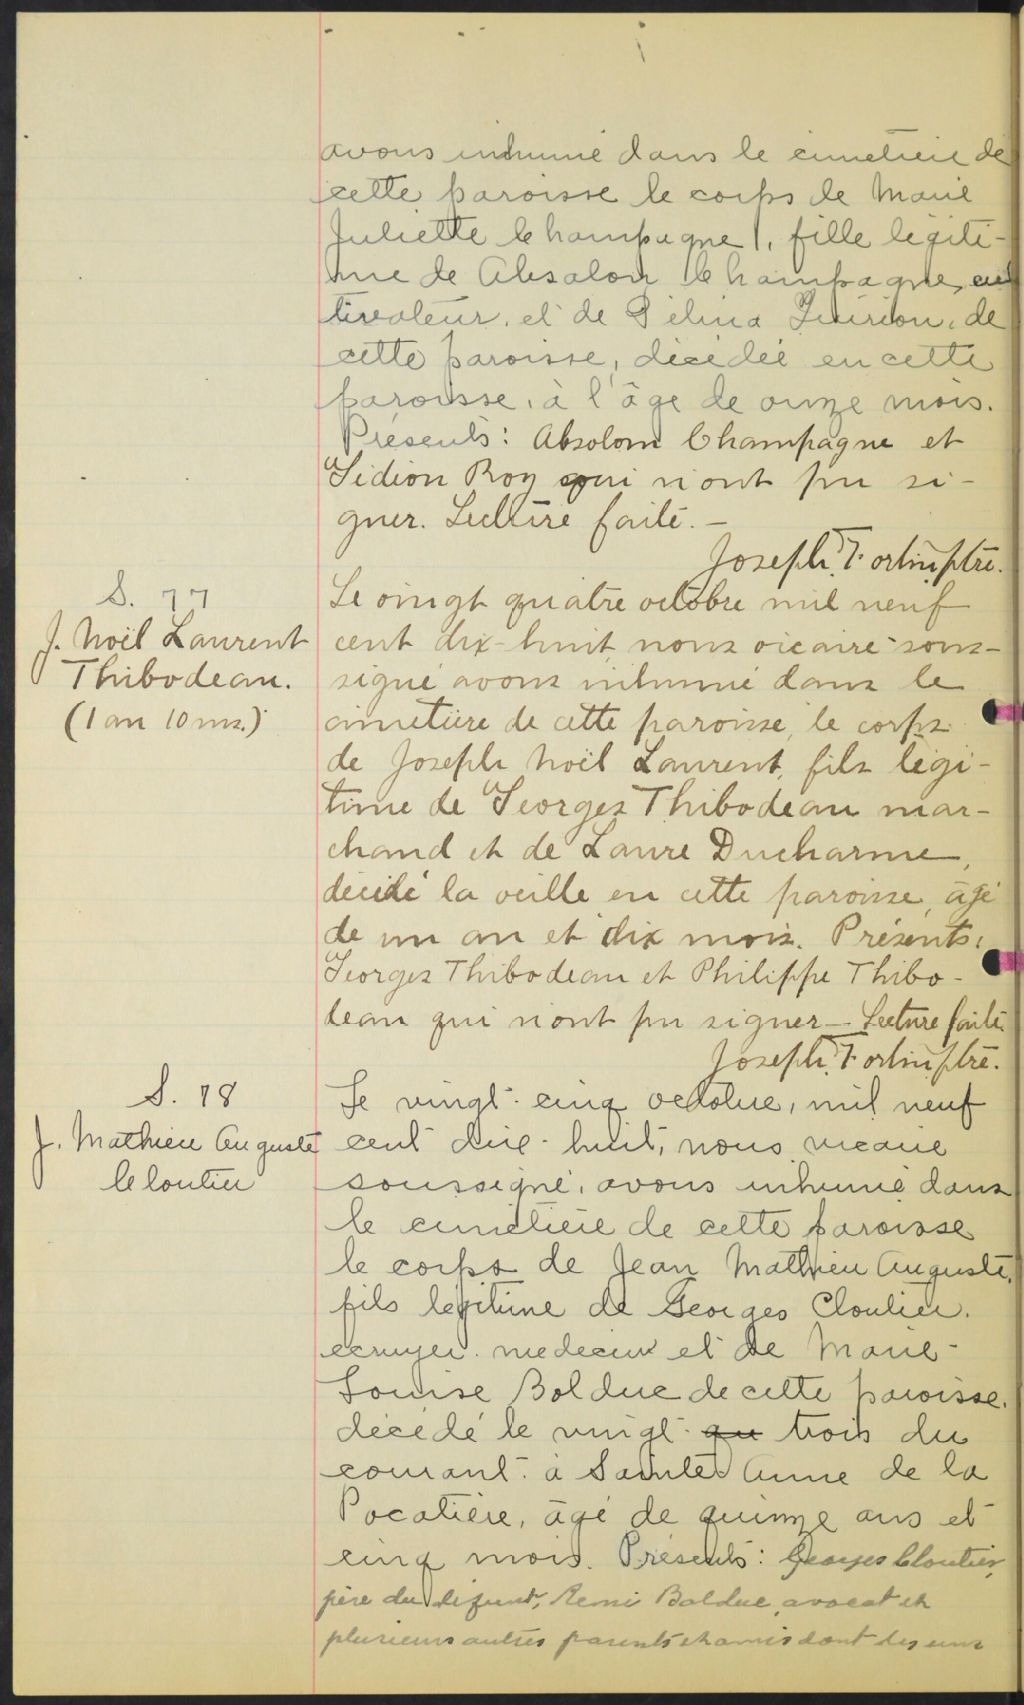 avons inhumé dans le cimetière de
cette paroisse le corps de Marie
Juliette Champagne, fille légiti-
me de Absalon Champagne, cul
tivateur, et de Célina Quirion, de
cette paroisse, décédée en cette
paroisse, à l'âge de onze mois.
Présents: Absolom Champagne et
Gédéon Roy qui n'ont pu si-
gner. Lecture faite. -
Joseph Fortin ptre.
S. 77
J. Noël Laurent
Thibodeau.
(1 an 10 ms.)
Le vingt quatre octobre mil neuf
cent dix-huit nous vicaire sous-
signé avons inhumé dans le
cimetière de cette paroisse, le corps
de Joseph Noël Laurent, fils légi-
time de Georges Thibodeau mar-
chand et de Laure Ducharme,
décédé la veille en cette paroisse, âgé
de un an et dix mois. Présents:
Georges Thibodeau et Philippe Thibo-
deau qui n'ont pu signer - Lecture faite.
Joseph Fortin ptre.
S. 78
J. Mathieu Auguste
Cloutier
Le vingt-cinq octobre, mil neuf
cent dix-huit, nous vicaire
soussigné, avons inhumé dans
le cimetière de cette paroisse
le corps de Jean Mathieu Auguste,
fils légitime de Georges Cloutier.
écuyer médecin et de Marie-
Louise Bolduc de cette paroisse.
décédé le vingt-qu trois du
courant à Sainte Anne de la
Pocatière, âgé de quinze ans et
cinq mois. Présents: Georges Cloutier,
père du défunt, Rémi Bolduc, avocat et
plusieurs autres parents et amis dont les uns